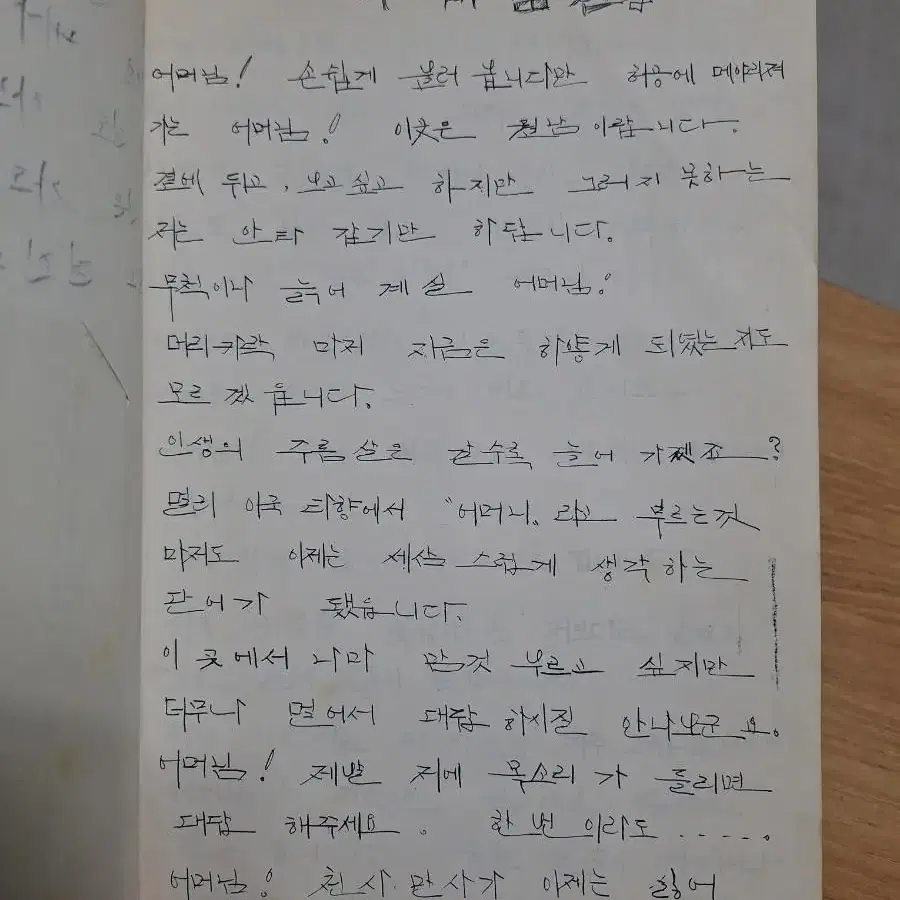 어머님! 손쉽게 불러 봅니다만 허공에 메아리져
가는 어머님! 이곳은 월남 이랍니다.
곁에 두고, 보고 싶고 하지만 그러지 못하는
저는 안타 깝기만 하답니다.
무척이나 늙어 계실 어머님!
머리카락 마저 지금은 하얗게 되였는지도
모르 겠읍니다.
인생의 주름살은 갈수록 늘어 가겠죠?
멀리 이국 타향에서 "어머니, 라고 부르는것
마저도 이제는 새삼 스럽게 생각하는
단어가 됐읍니다.
이 곳에서 나마 맘것 부르고 싶지만
너무나 멀어서 대답 하시질 안나보군요.
어머님! 제발 저에 목소리가 들리면
대답 해주세요. 한번 이라도 .....
어머님! 천사 만사가 이제는 싫어